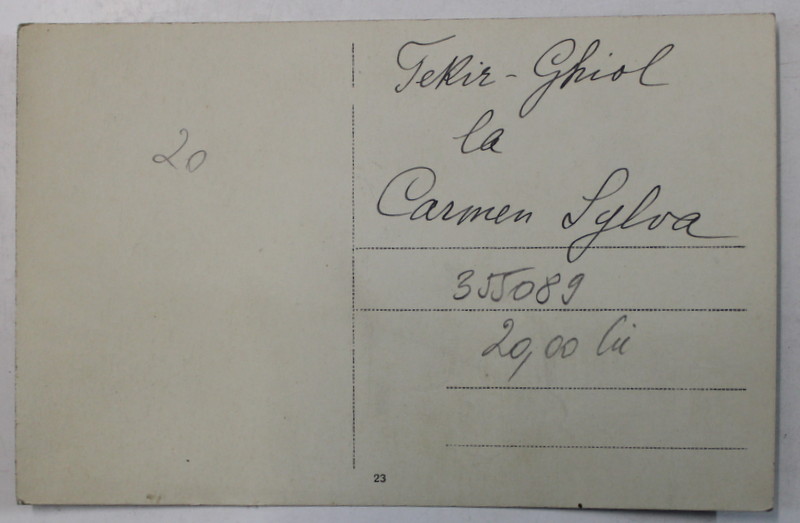 20
Tekir-Ghiol
la
Carmen Sylva
355089
20,00 lii
23